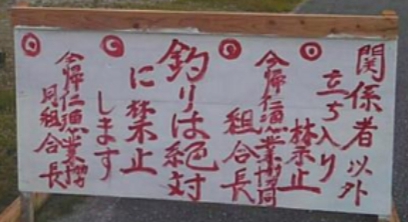 関係者以外
立ち入り
禁止
今帰仁漁業協同
組合長
釣りは絶対
に禁止
します
今帰仁漁業協
同組合長